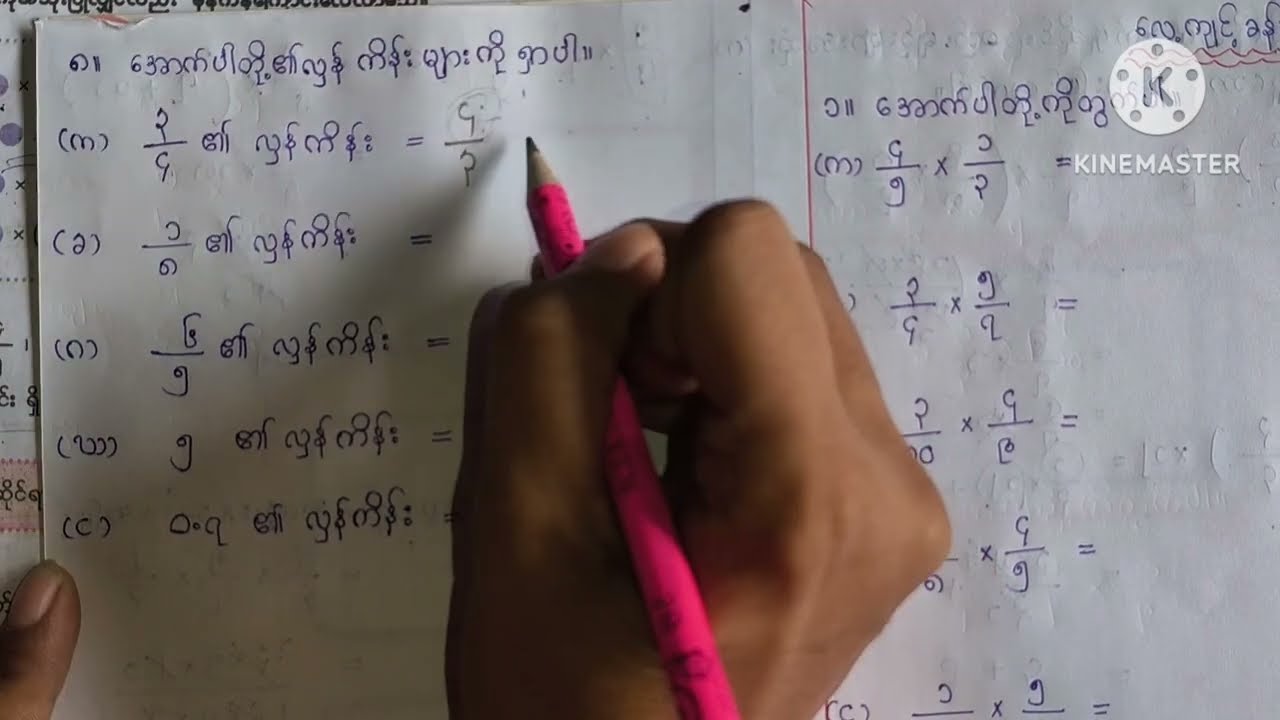 ၈။ အောက်ပါတို့၏လှန် ကိန်း များကို ရှာပါ။
(က) ၃/၄ ၏ လှန်ကိန်း = ၄/၃
(ခ) ၁/၈ ၏ လှန်ကိန်း =
(ဂ) ၆/၅ ၏ လှန်ကိန်း =
(ဃ) ၅ ၏ လှန်ကိန်း =
(င) ဝ.၇ ၏ လှန်ကိန်း =
လေ့ကျင့်ခန်
၁။ အောက်ပါတို့ကိုတွက်
(က) ၄/၅ × ၁/၃ =
၃/၄ × ၅/၇ =
× =
× ၄/၅ =
(င) ၁ × ၅ =
KINEMASTER